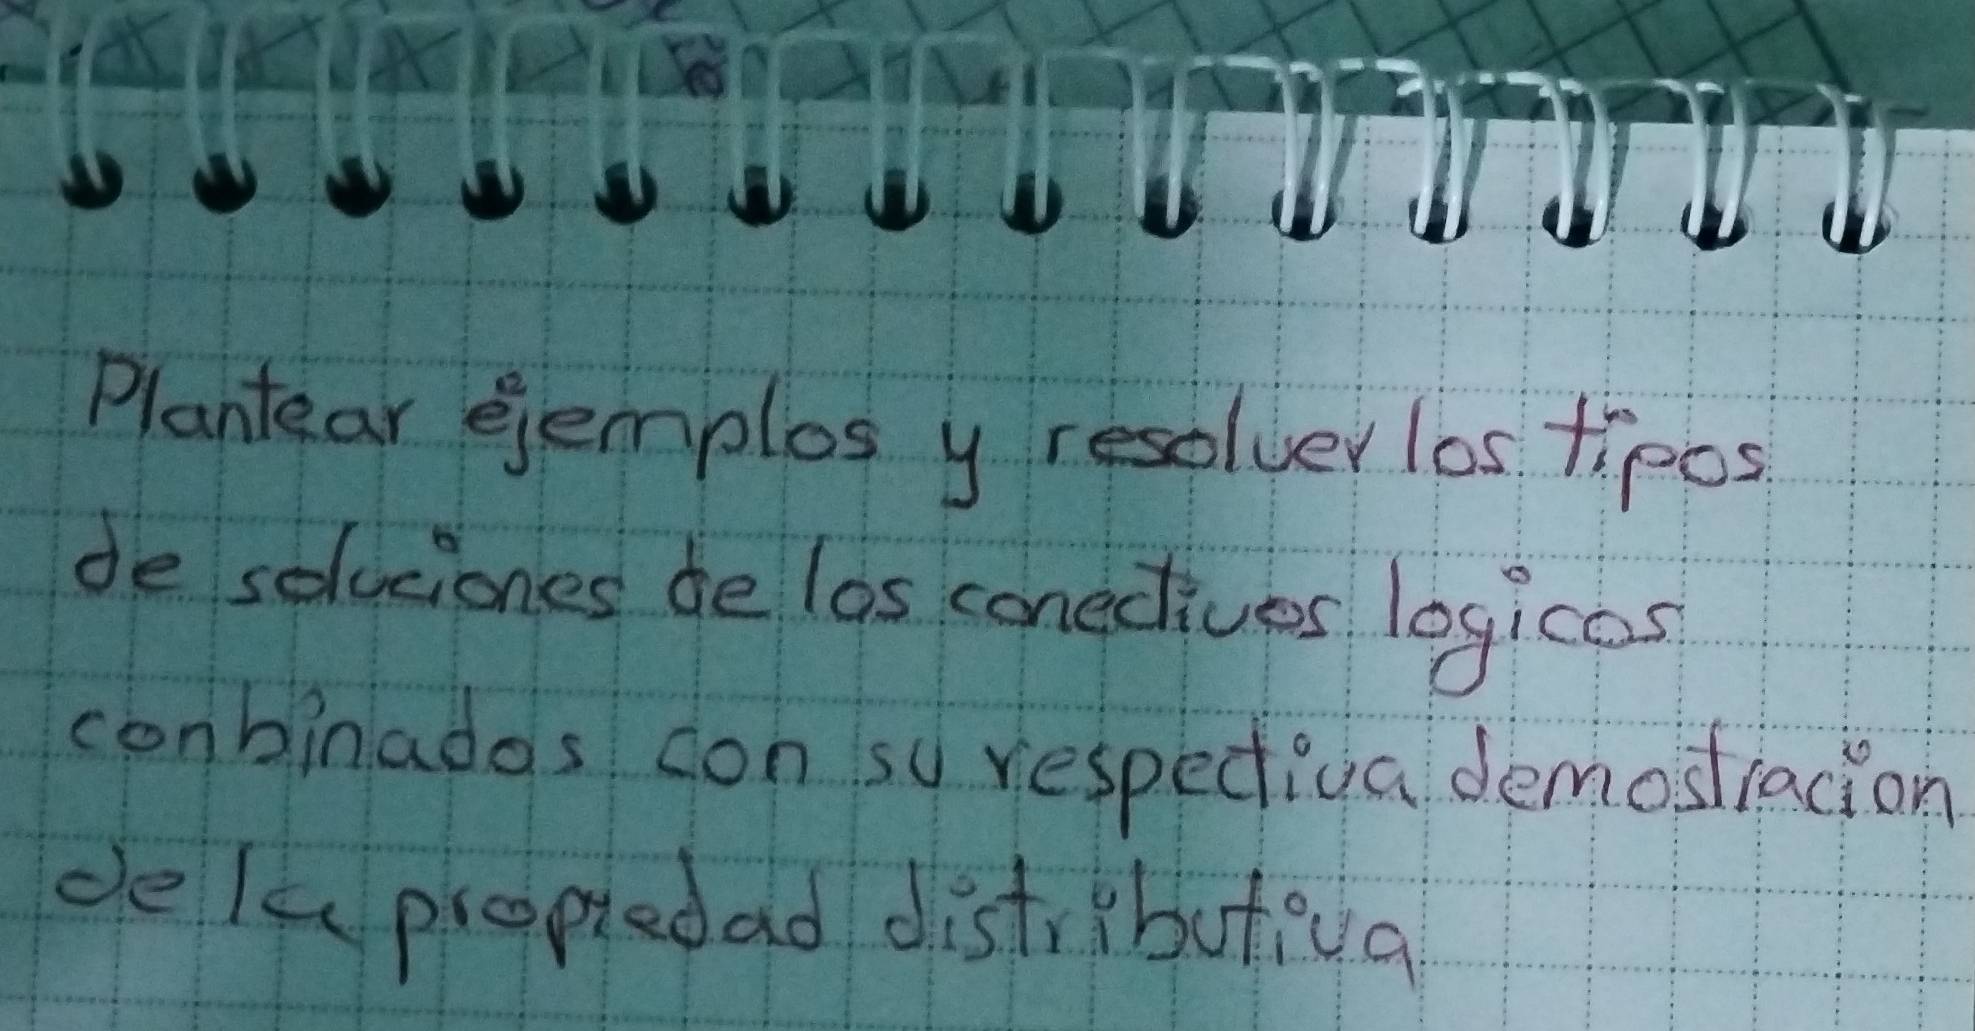 Plantear ejemplos y resolver los tipos
de soluciones de los conectivos logicos
conbinados con su respectiva demostracion
de la propiedad distributiva